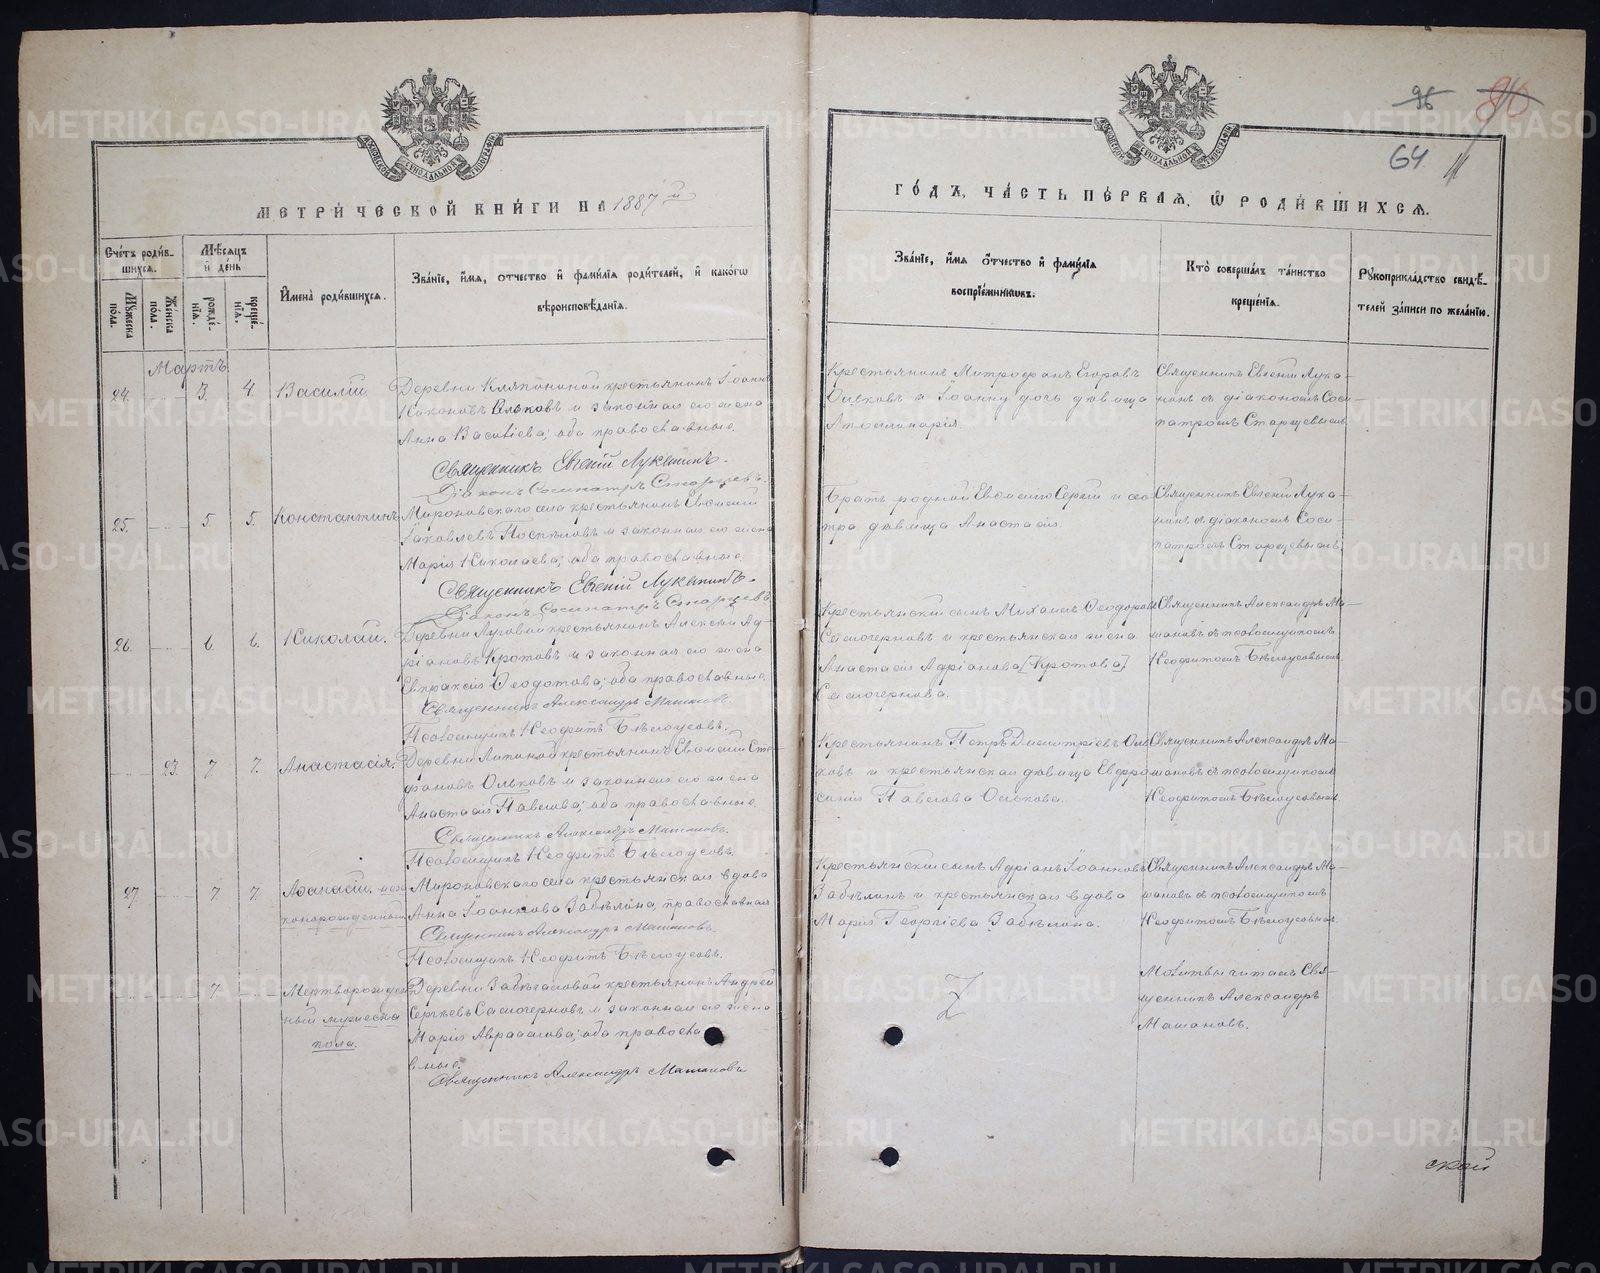 96 840
64.
МЕТРИ́ЧЕСКОЙ КНИ́ГИ НА 1887й
ГО́ДЪ, ЧА́СТЬ ПЕ́РВАѦ, Ѡ РОДИ́ВШИХСѦ.
Сче́тъ роди́в-
шихсѧ.
Мꙋжеска по́ла.
Же́нска по́ла.
Мѣ́сѧцъ
и҆ де́нь
рожде́-
нїѧ.
креще́-
нїѧ.
И҆мена̀ роди́вшихсѧ.
Зва́нїе, и҆́мѧ, о́тчество и҆ фами́лїѧ роди́телей, и҆ како́гѡ
вѣроисповѣ́данїѧ.
Зва́нїе, и҆́мѧ о́тчество и҆ фами́лїѧ
воспрїе́мникѡвъ.
Кто̀ соверша́лъ та́инство
креще́нїѧ.
Рꙋкоприкла́дство свидѣ́-
телей за́писи по жела́нїю.
Мартъ
24. 3. 4. Василій
Деревни Клепининой крестьянинъ Іоаннъ
Никоновъ Ольковъ и законная его жена
Анна Васильева; оба православные.
Священникъ Евгеній Лукашинъ.
Діаконъ Сосипатръ Старцевъ.
Крестьянинъ Митрофанъ Егоровъ
Ольковъ и дочь дѣвица
Аполлинарія.
Священникъ Евгеній Лука-
шинъ съ діакономъ Соси-
патромъ Старцевымъ
25. 5. 5. Константинъ
Мироновскаго села крестьянинъ Евѳимій
Іаковлевъ Поспѣловъ и законная его жена
Марія Николаева; оба православные.
Священникъ Евгеній Лукашинъ.
Діаконъ Сосипатръ Старцевъ
Братъ родной Евѳимію Сергій и сес-
тра дѣвица Анастасія.
Священникъ Евгеній Лука-
шинъ съ діакономъ Соси-
патромъ Старцевымъ
26. 6. 6. Николай.
Деревни Луговой крестьянинъ Алексѣй Ад-
ріановъ Кротовъ и законная его жена
Евпраксія Ѳеодотова; оба православные.
Священникъ Александръ Машановъ.
Псаломщикъ Неофитъ Бѣлоусовъ.
Крестьянскій сынъ Михаилъ Ѳеодоровъ
Самочерновъ и крестьянская жена
Анастасія Адріанова [Кротова]
Самочернова.
Священникъ Александръ Ма-
шановъ съ псаломщикомъ
Неофитомъ Бѣлоусовымъ
23. 7 7. Анастасія.
Деревни Липиной крестьянинъ Евѳимій Сте-
фановъ Ольковъ и законная его жена
Анастасія Павлова; оба православные.
Священникъ Александръ Машановъ.
Псаломщикъ Неофитъ Бѣлоусовъ.
Крестьянинъ Петръ Димитріевъ Оль-
ковъ и крестьянская дѣвица Евфро-
синія Павлова Олькова.
Священникъ Александръ Ма-
шановъ съ псаломщикомъ
Неофитомъ Бѣлоусовымъ
27. 7 7. Аѳанасій. неза-
коннорожденный
Мироновскаго села крестьянская вдова
Анна Іоаннова Забѣлина, православная
Священникъ Александръ Машановъ.
Псаломщикъ Неофитъ Бѣлоусовъ.
Крестьянскій сынъ Адріанъ Іоанновъ
Забѣлинъ и крестьянская вдова
Марія Георгіева Забѣлина.
Священникъ Александръ Ма-
шановъ съ псаломщикомъ
Неофитомъ Бѣлоусовымъ.
7 Мертворожден-
ный мужеска
пола.
Деревни крестьянинъ Андрей
Сергѣевъ Самочерновъ и законная его жена
Марія Авраамова; оба правосла-
вные.
Священникъ Александръ Машановъ
Молитвы читалъ Свя-
щенникъ Александръ
Машановъ.
ской
METRIKI.GASO-URAL.RU